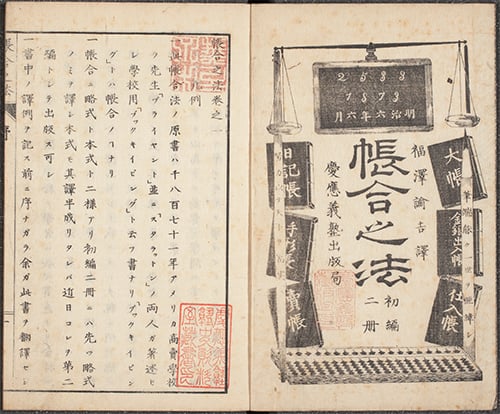 2533
1873
明治六年六月
福澤諭吉譯
帳合之法
初編
二冊
慶應義塾出版局
大帳
金銀出入帳
仕入帳
日記帳
手形帳
賣帳
帳合之法巻之一
凡例
一此帳合法ノ原書ハ千八百七十一年アメリカ商賣學校
ノ先生「ブライヤント」並ニ「スタラットン」ノ両人ガ著述セ
シ學校用「ブックキイピング」ト云フ書ナリ「ブックキイピン
グ」トハ帳合ノヿナリ
一帳合ニ略式ト本式ト二様アリ初編二冊ニハ先ツ略式
ノミヲ譯シ本式モ其譯半成リタレバ近日コレヲ第二
編トシテ出版ス可シ
一書中ノ譯例ヲ記ス前ニ序ナガラ余ガ此書ヲ翻譯セシ